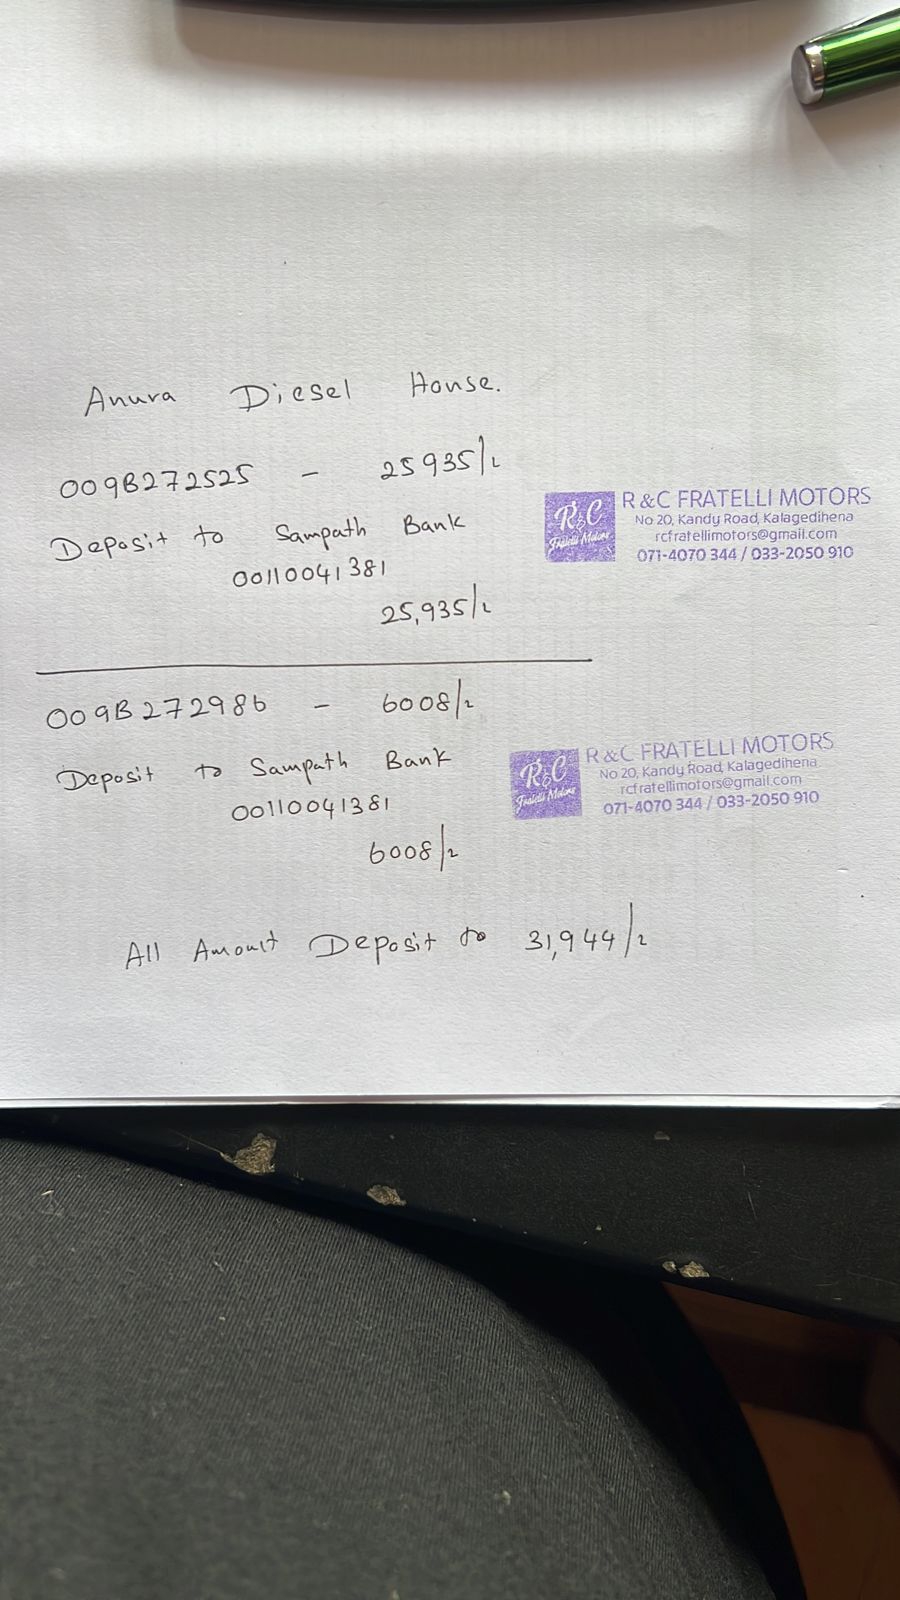 Anura Diesel House.
009B272525 - 25935/2
Deposit to Sampath Bank
00110041381
25,935/2
R&C
Fratelli Motors
R & C FRATELLI MOTORS
No 20, Kandy Road, Kalagedihena
rcfratellimotors@gmail.com
071-4070 344 / 033-2050 910
009B272986 - 6008/2
Deposit to Sampath Bank
00110041381
6008/2
R&C
Fratelli Motors
R & C FRATELLI MOTORS
No 20, Kandy Road, Kalagedihena
rcfratellimotors@gmail.com
071-4070 344 / 033-2050 910
All Amount Deposit to 31,944/2